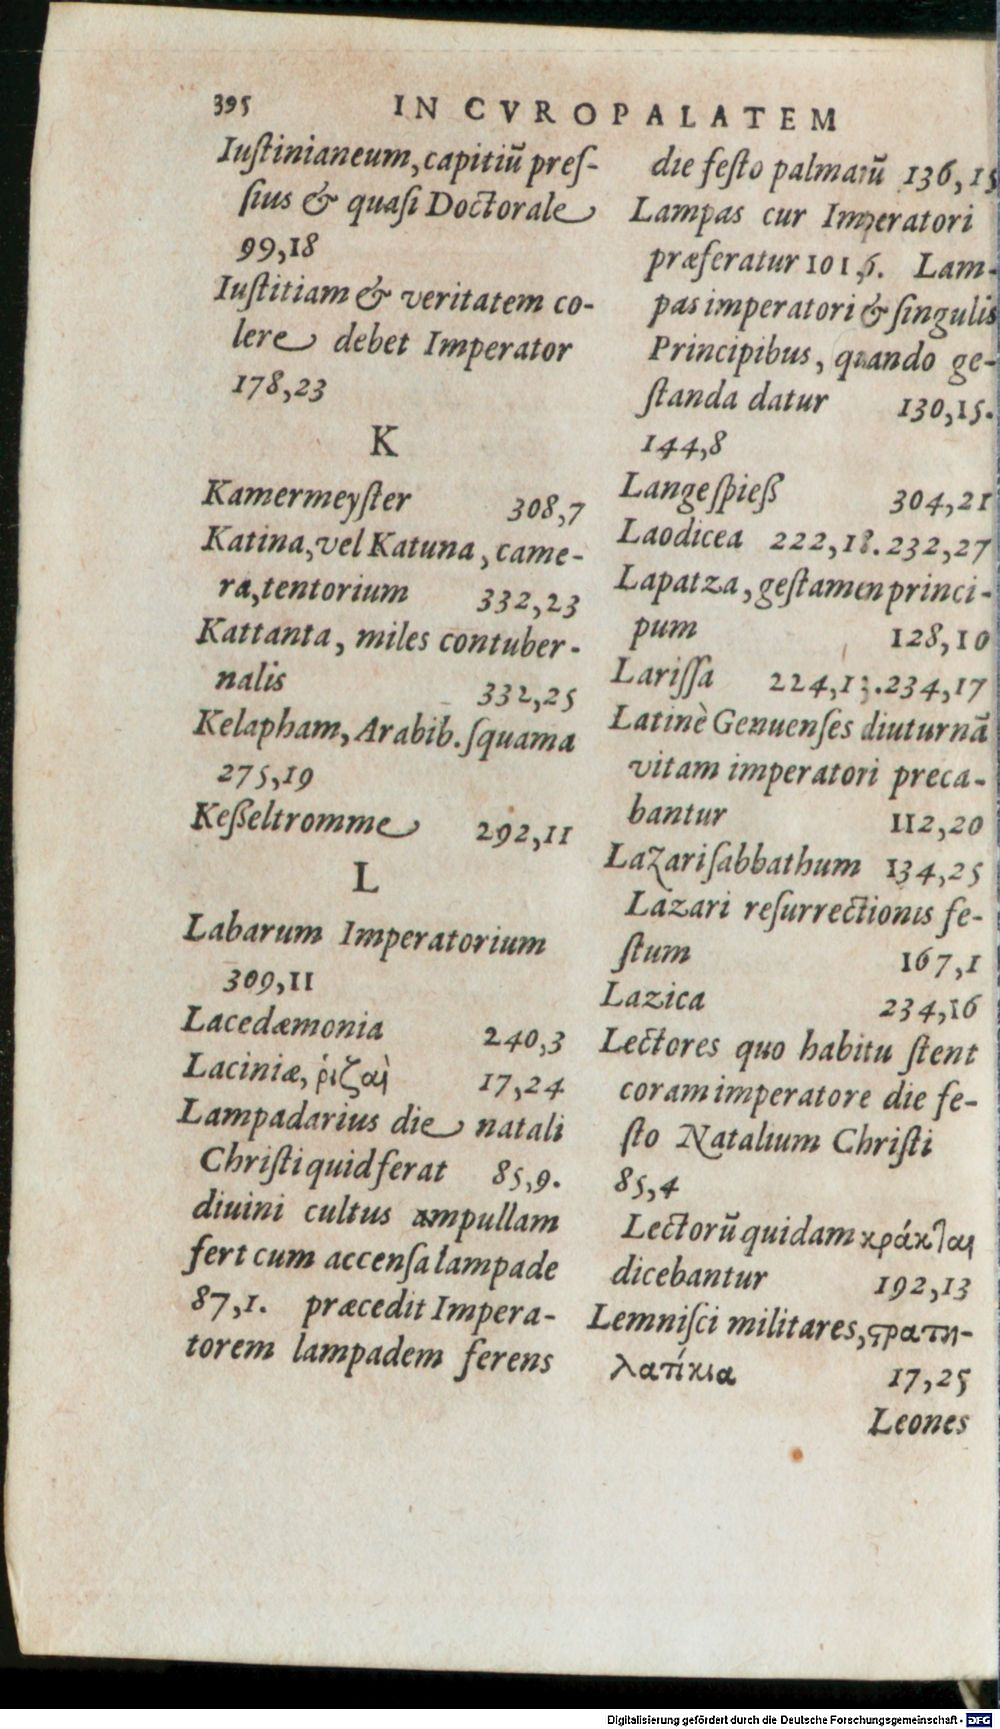 395 IN CVROPALATEM
Iuſtinianeum, capitiũ preſ-
ſius & quaſi Doctorale
99,18
Iuſtitiam & veritatem co-
lere debet Imperator
178,23
K
Kamermeyſter 308,7
Katina, vel Katuna, came-
ra, tentorium 332,23
Kattanta, miles contuber-
nalis 332,25
Kelapham, Arabib. ſquama
275,19
Keßeltromme 292,11
L
Labarum Imperatorium
309,11
Lacedæmonia 240,3
Laciniæ, ῥίζαι 17,24
Lampadarius die natali
Chriſti quid ferat 85,9.
diuini cultus ampullam
fert cum accenſa lampade
87,1. præcedit Impera-
torem lampadem ferens
die feſto palmarũ 136,15
Lampas cur Imperatori
præferatur 101 6. Lam-
pas imperatori & ſingulis
Principibus, quando ge-
ſtanda datur 130,15.
144,8
Langeſpieß 304,21
Laodicea 222,18. 232,27
Lapatza, geſtamen princi-
pum 128,10
Lariſſa 224,13. 234,17
Latinè Genuenſes diuturnã
vitam imperatori preca-
bantur 112,20
Lazari ſabbathum 134,25
Lazari reſurrectionis fe-
ſtum 167,1
Lazica 234,16
Lectores quo habitu ſtent
coram imperatore die fe-
ſto Natalium Chriſti
85,4
Lectorũ quidam κράκται
dicebantur 192,13
Lemniſci militares, ϛρατη-
λατίκια 17,25
Leones
Digitalisierung gefördert durch die Deutsche Forschungsgemeinschaft - DFG